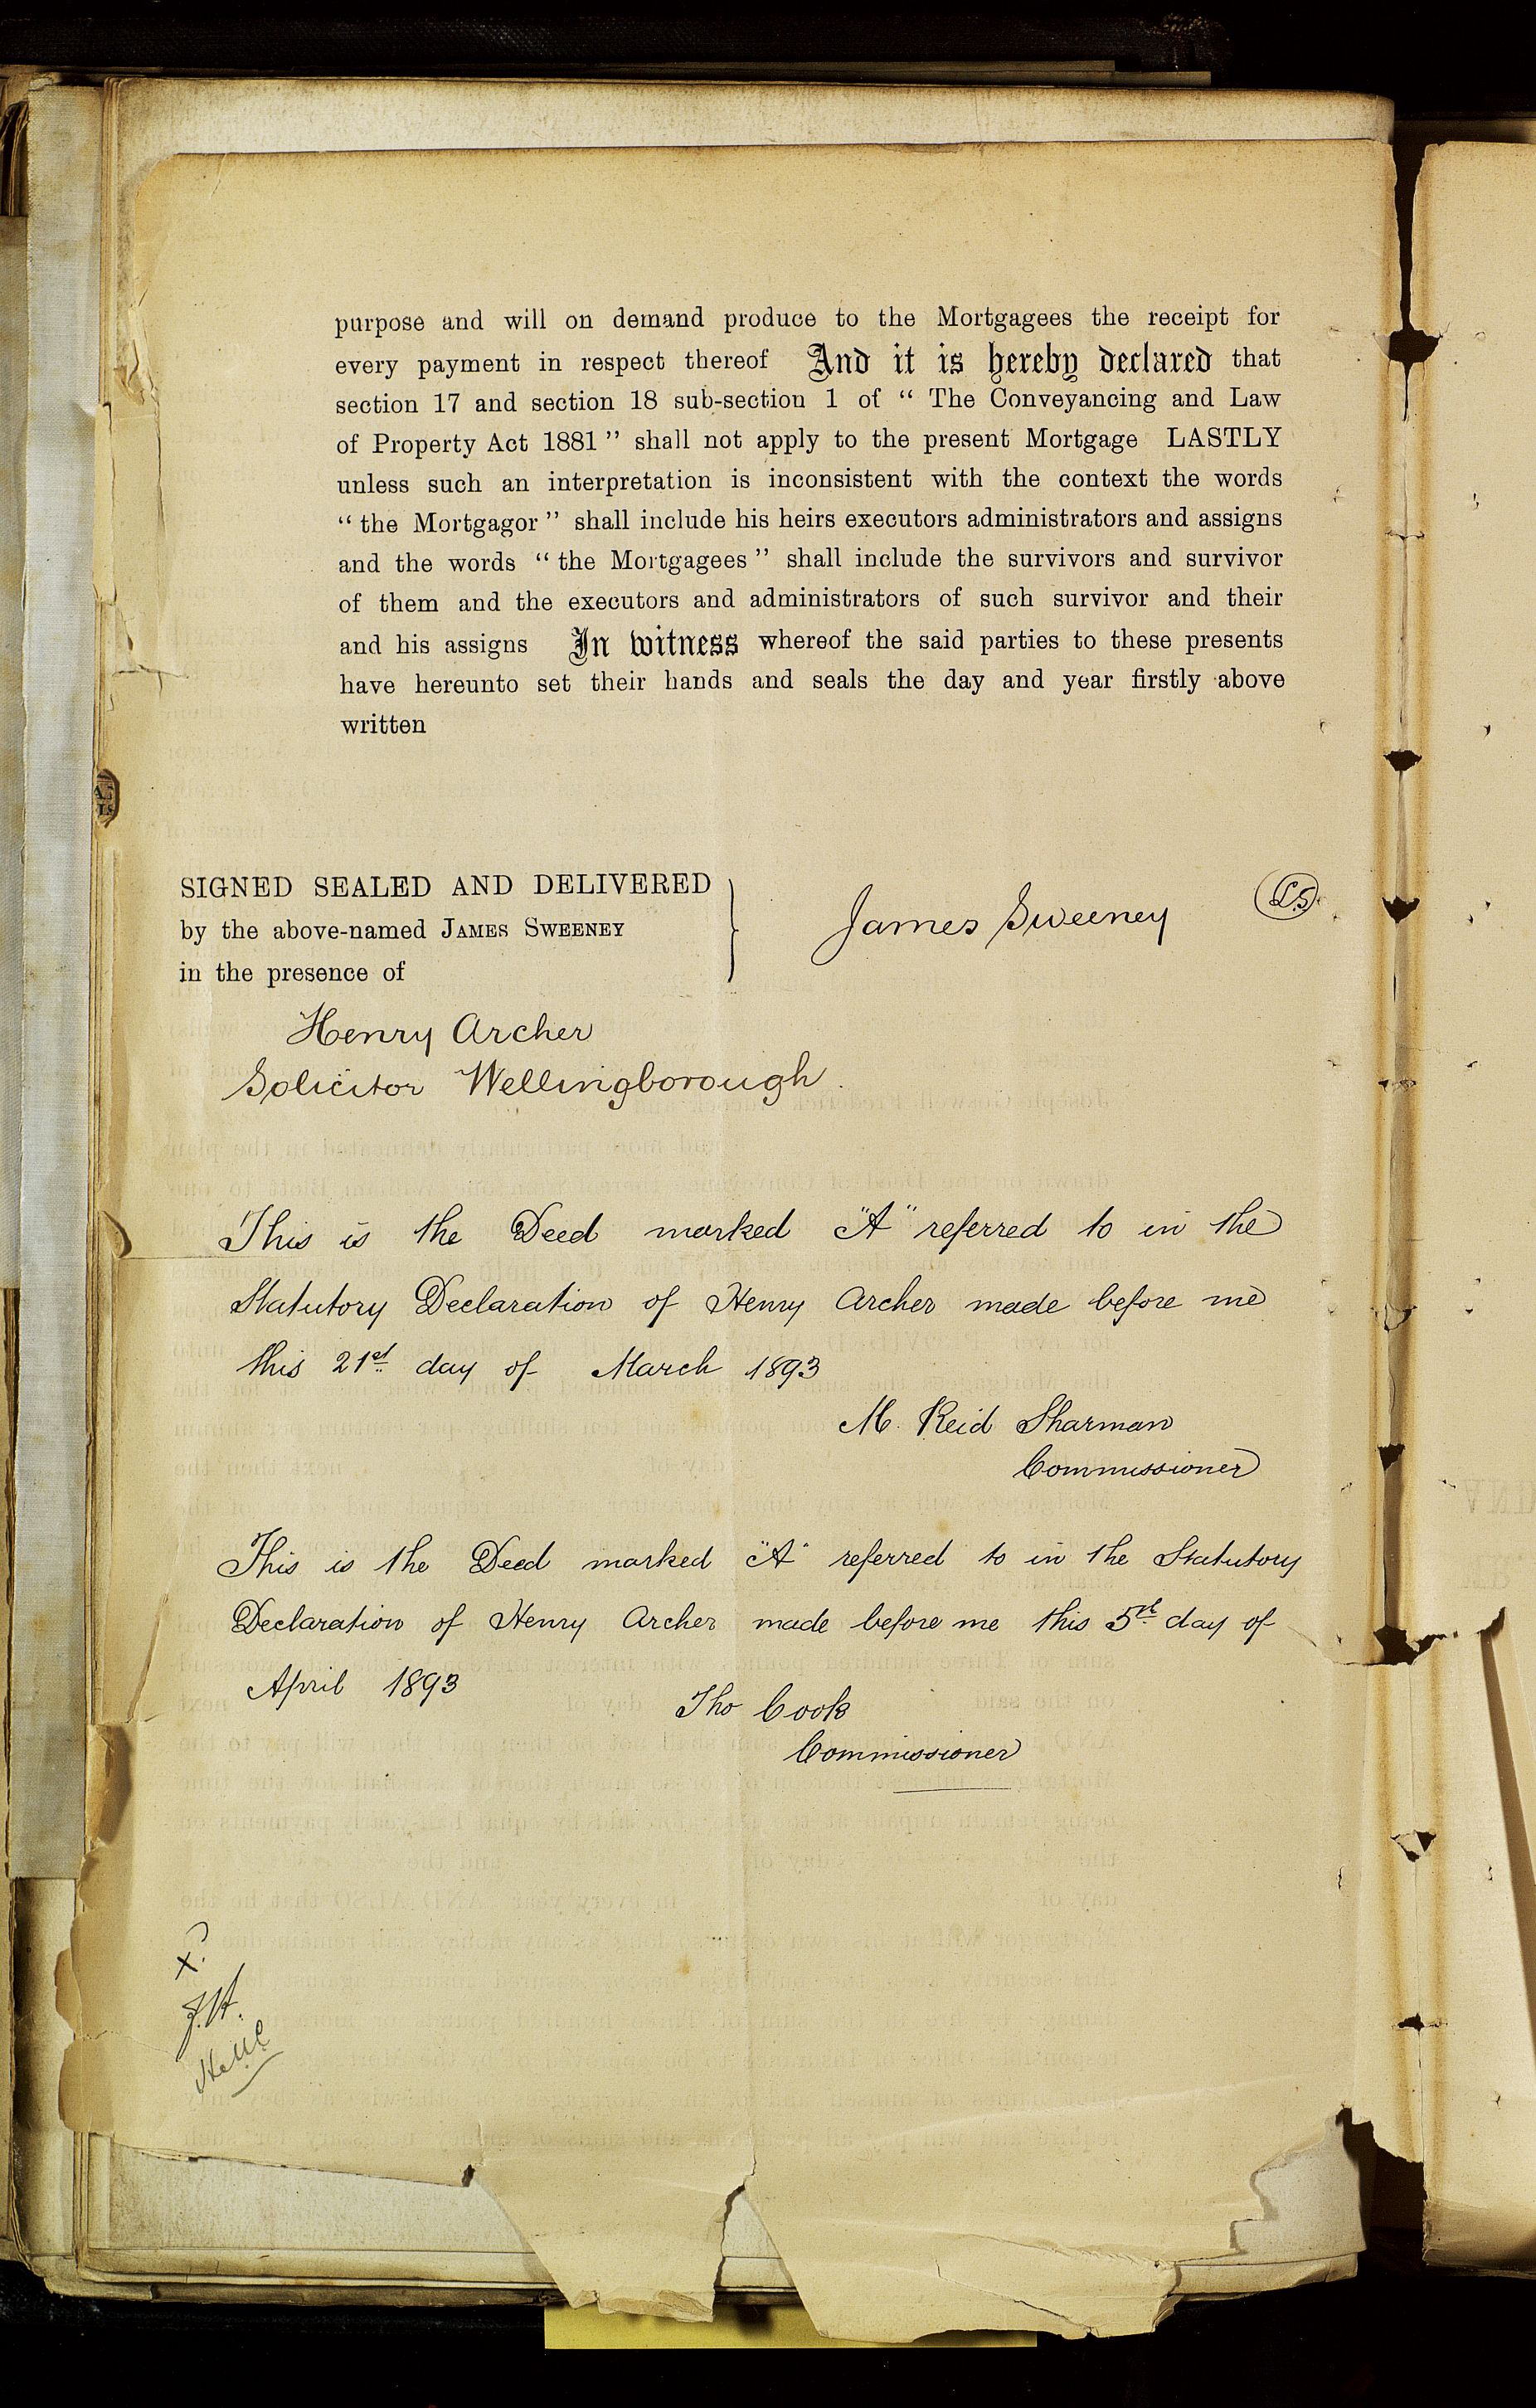 purpose and will on demand produce to the Mortgagees the receipt for
every payment in respect thereof And it is hereby declared that
section 17 and section 18 sub-section 1 of “ The Conveyancing and Law
of Property Act 1881 ” shall not apply to the present Mortgage LASTLY
unless such an interpretation is inconsistent with the context the words
“ the Mortgagor ” shall include his heirs executors administrators and assigns
and the words “ the Mortgagees ” shall include the survivors and survivor
of them and the executors and administrators of such survivor and their
and his assigns In witness whereof the said parties to these presents
have hereunto set their hands and seals the day and year firstly above
written
SIGNED SEALED AND DELIVERED
by the above-named JAMES SWEENEY
in the presence of
James Sweeney
L.S.
Henry Archer
Solicitor Wellingborough.
This is the Deed marked "A" referred to in the
Statutory Declaration of Henry Archer made before me
this 21st day of March 1893
M. Reid Sharman
Commissioner
This is the Deed marked "A" referred to in the Statutory
Declaration of Henry Archer made before me this 5th day of
April 1893
Tho Cook
Commissioner